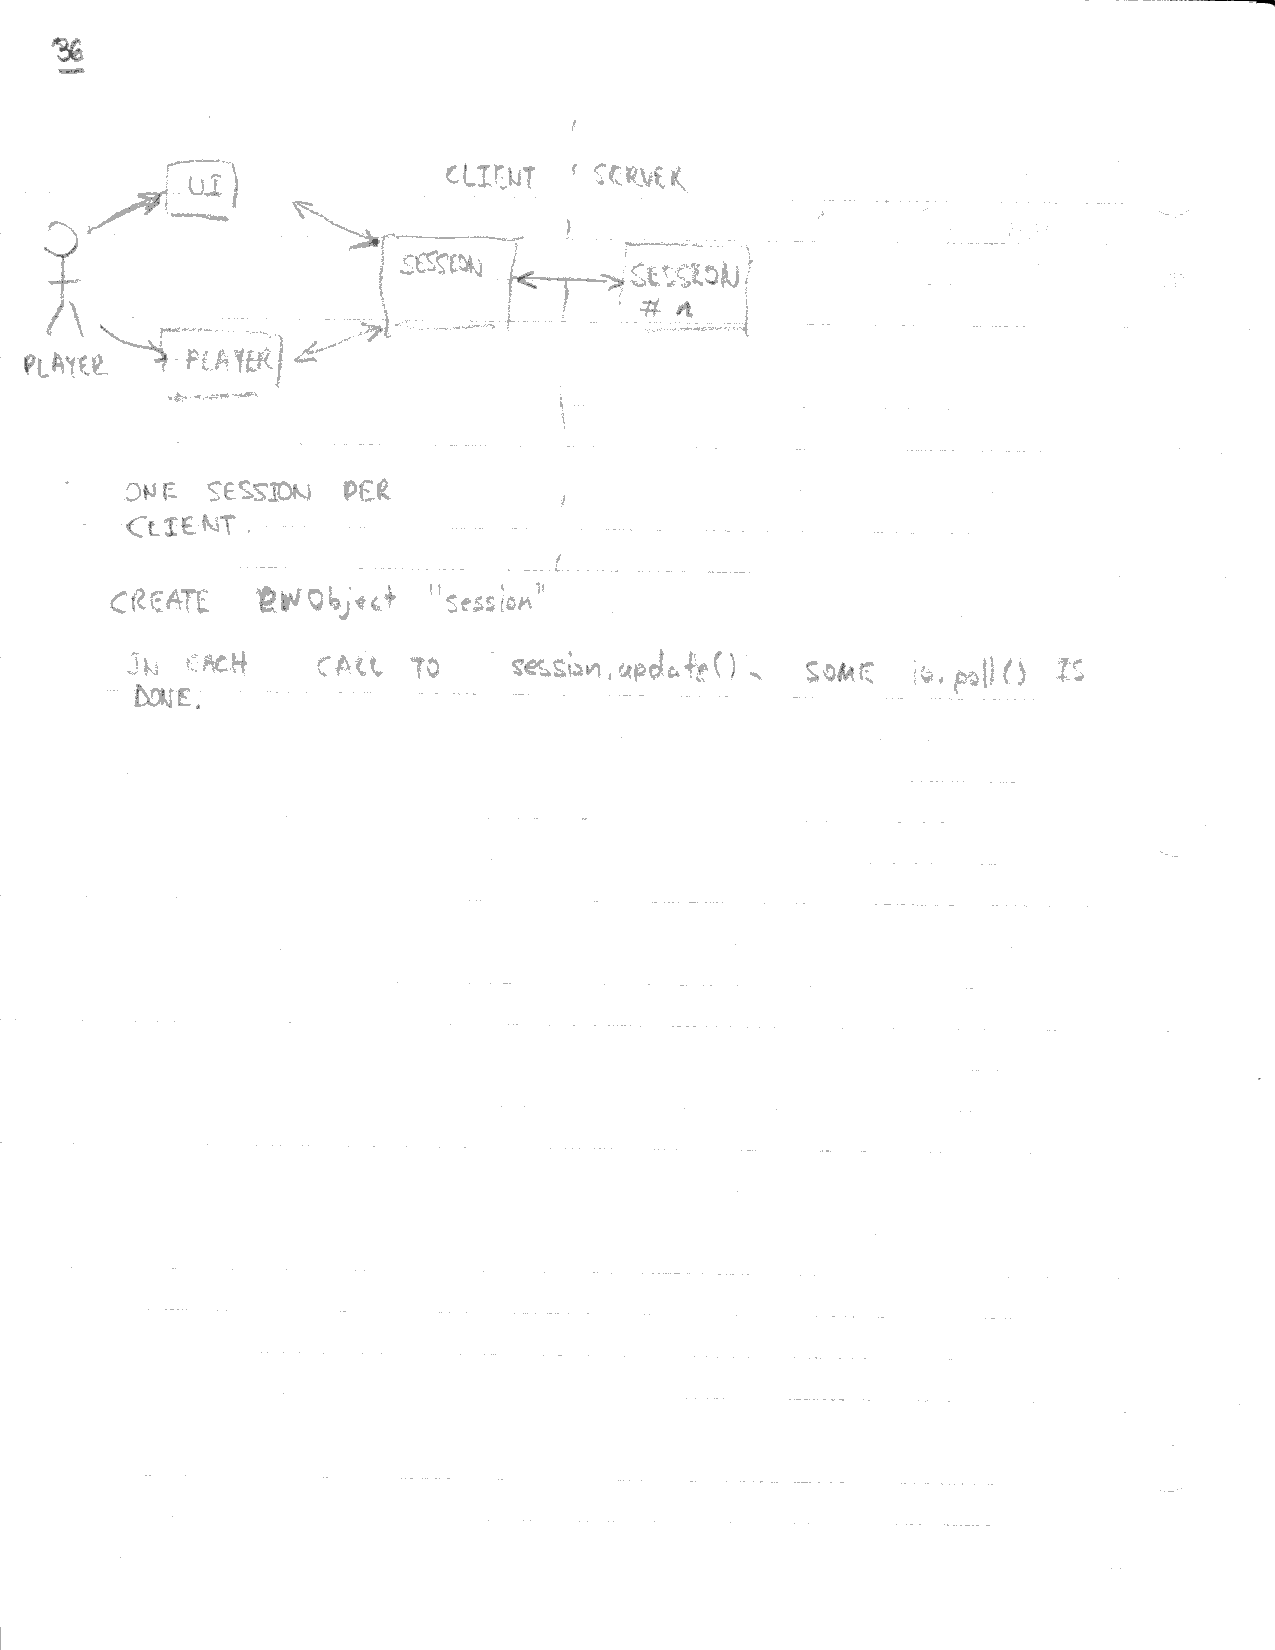 36
CLIENT SERVER
UI
SESSION
SESSION
# n
PLAYER
PLAYER
ONE SESSION PER
CLIENT.
CREATE Object "session"
IN EACH CALL TO session.update(), SOME io.poll() IS
DONE.